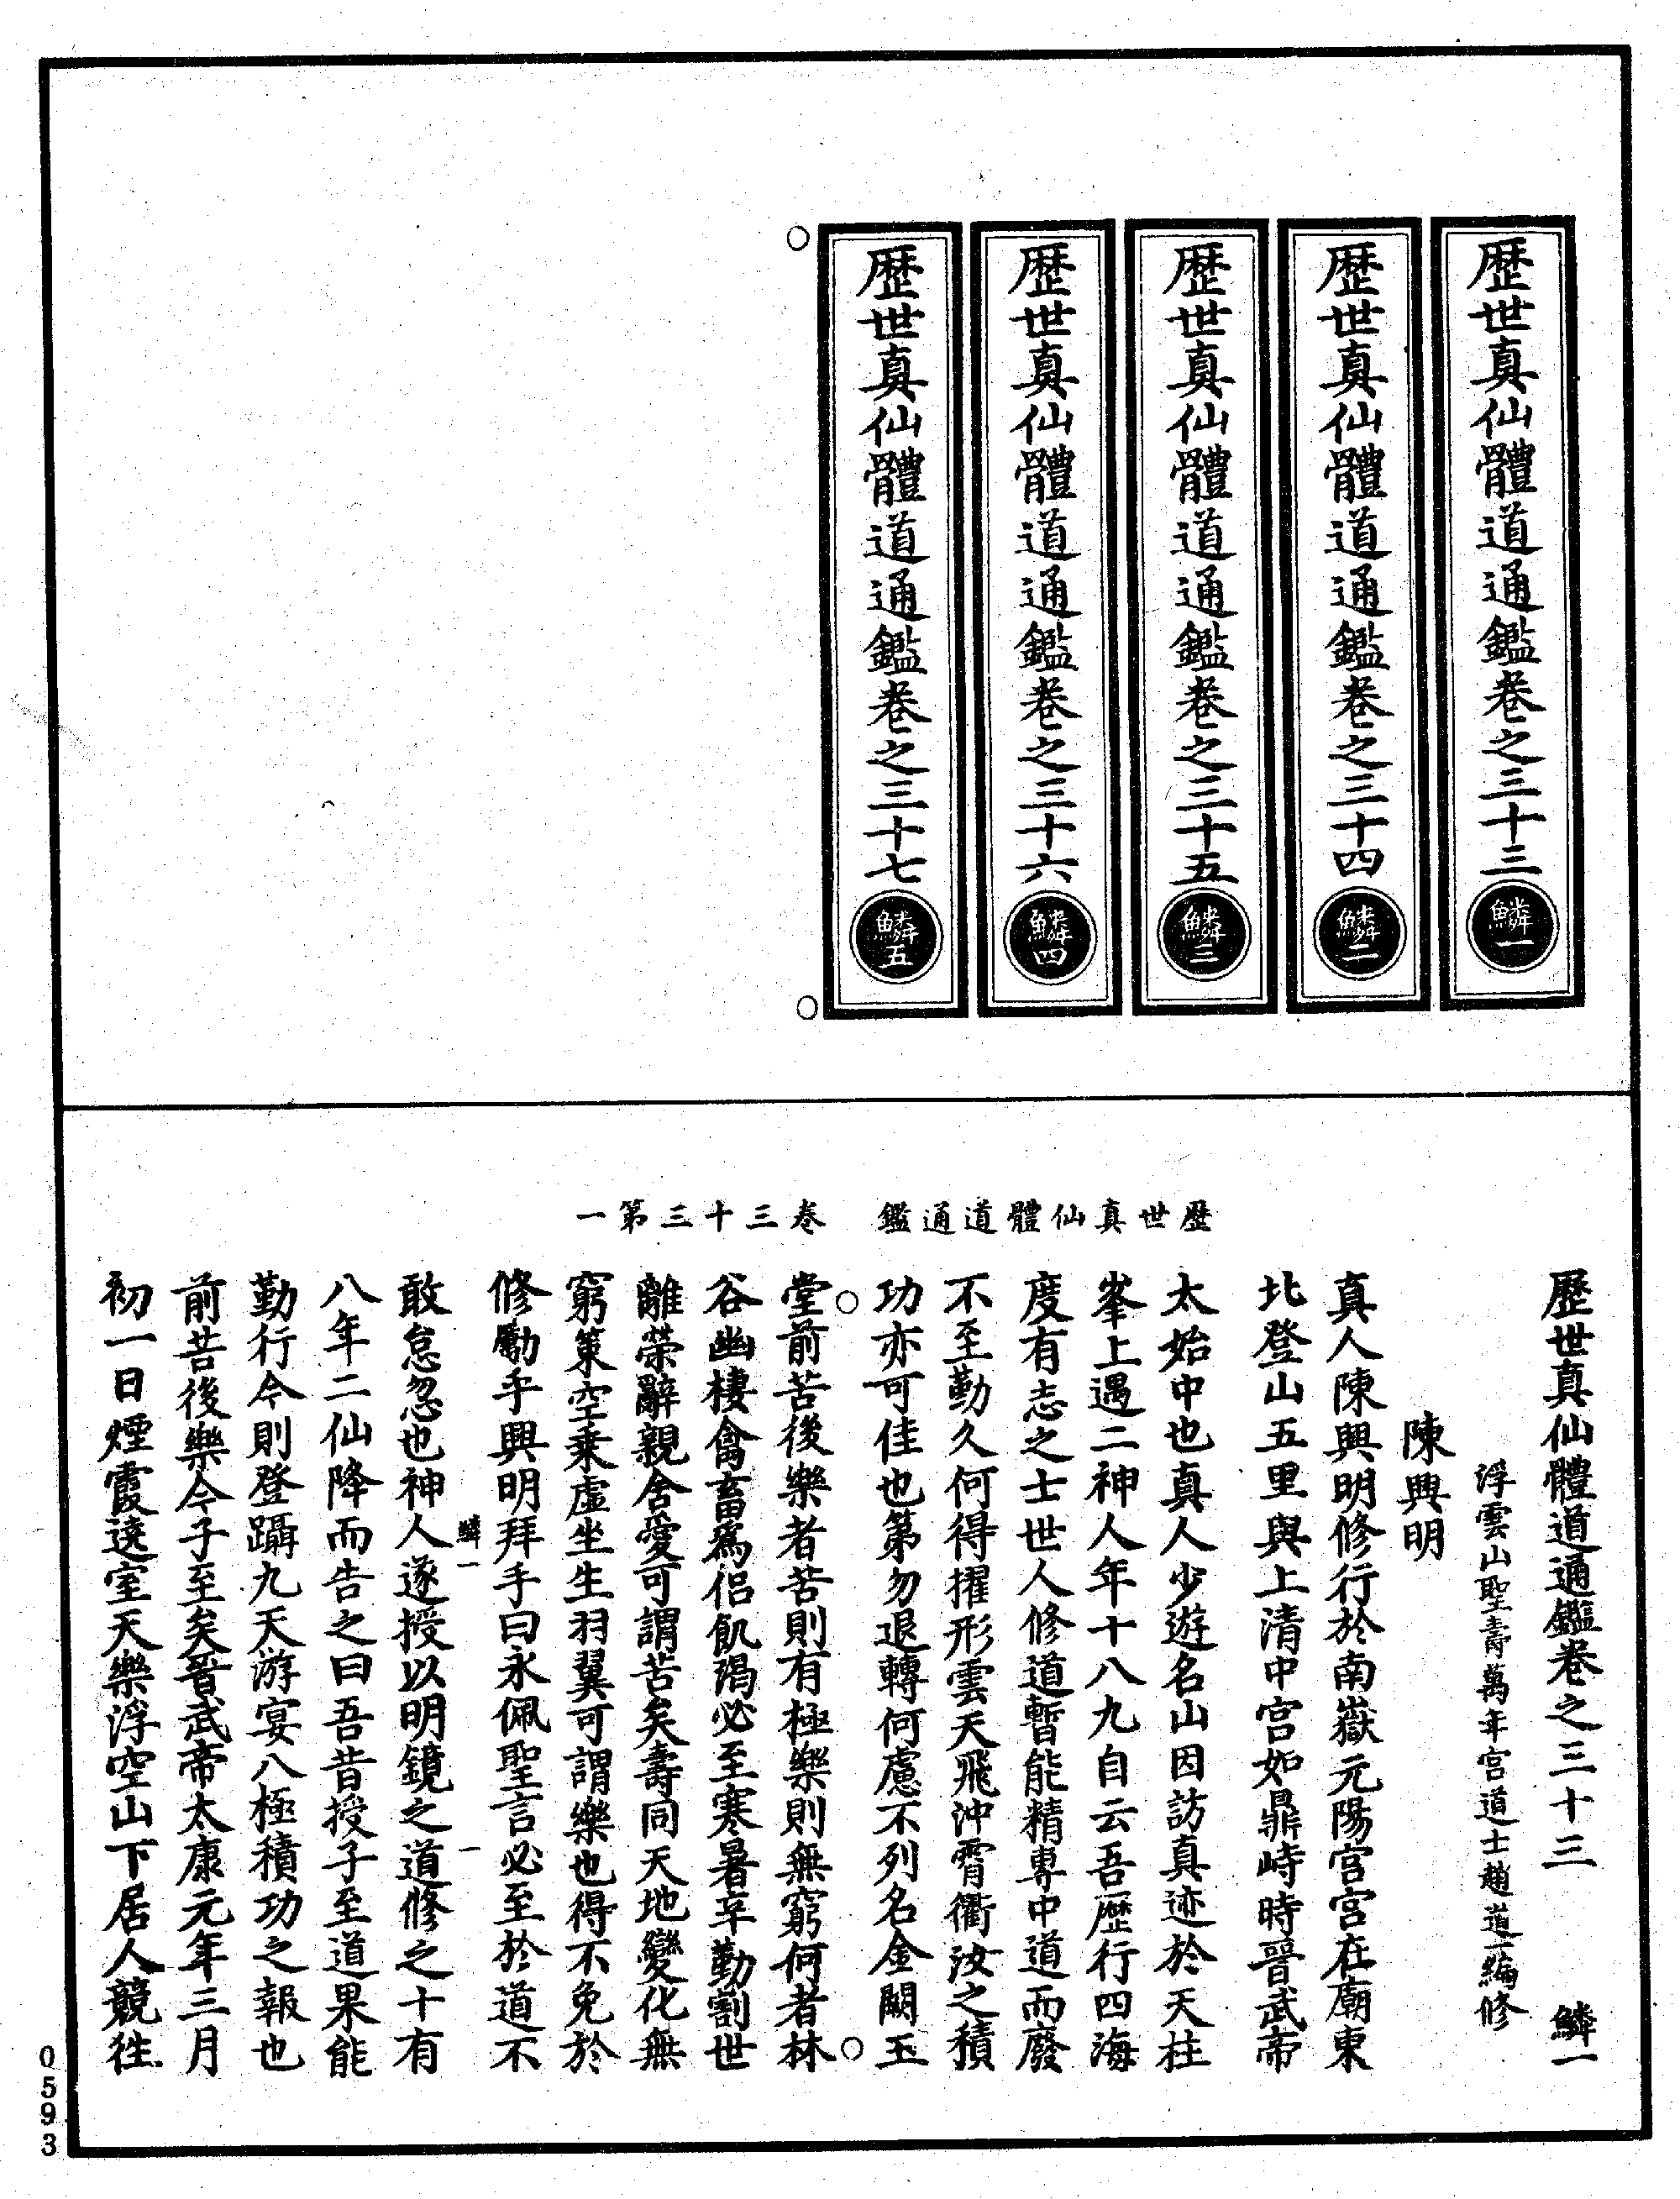 歷世真仙體道通鑑卷之三十三 鱗一
歷世真仙體道通鑑卷之三十四 鱗二
歷世真仙體道通鑑卷之三十五 鱗三
歷世真仙體道通鑑卷之三十六 鱗四
歷世真仙體道通鑑卷之三十七 鱗五
歷世真仙體道通鑑 卷三十三第一
歷世真仙體道通鑑卷之三十三 鱗一
浮雲山聖壽萬年宮道士趙道一編修
陳興明
真人陳興明修行於南嶽元陽宮宮在廟東
北登山五里與上清中宮如鼎峙時晉武帝
太始中也真人少遊名山因訪真迹於天柱
峯上遇二神人年十八九自云吾歷行四海
度有志之士世人修道暫能精專中道而廢
不至勤久何得擢形雲天飛沖霄衢汝之積
功亦可佳也第勿退轉何慮不列名金闕玉
堂前苦後樂者苦則有極樂則無窮何者林
谷幽棲禽畜為侶飢渴必至寒暑辛勤割世
離榮辭親舍愛可謂苦矣壽同天地變化無
窮策空乘虛坐生羽翼可謂樂也得不免於
修勵乎興明拜手曰永佩聖言必至於道不
鱗一 一
敢怠忽也神人遂授以明鏡之道修之十有
八年二仙降而告之曰吾昔授子至道果能
勤行今則登躡九天游宴八極積功之報也
前苦後樂今子至矣晉武帝太康元年三月
初一日煙霞遶室天樂浮空山下居人競往
0593